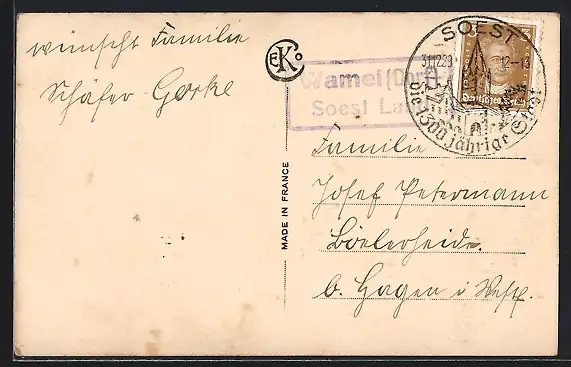 wünscht Familie
Schäfer-Gerke
EKCo
MADE IN FRANCE
Wamel (Dorf)
Soest Land
SOEST
31.12.29 12-13
die 1300 jährige Stadt
3 3
Deutsches Reich
Familie
Josef Petermann
Boelerheide.
b. Hagen i Westf.